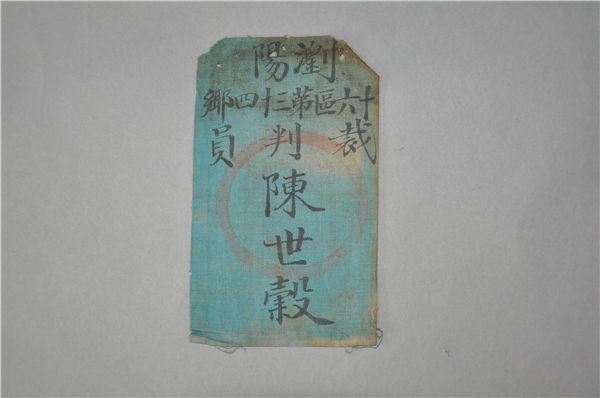 瀏陽
十六區第三十四鄉
裁判員
陳世穀